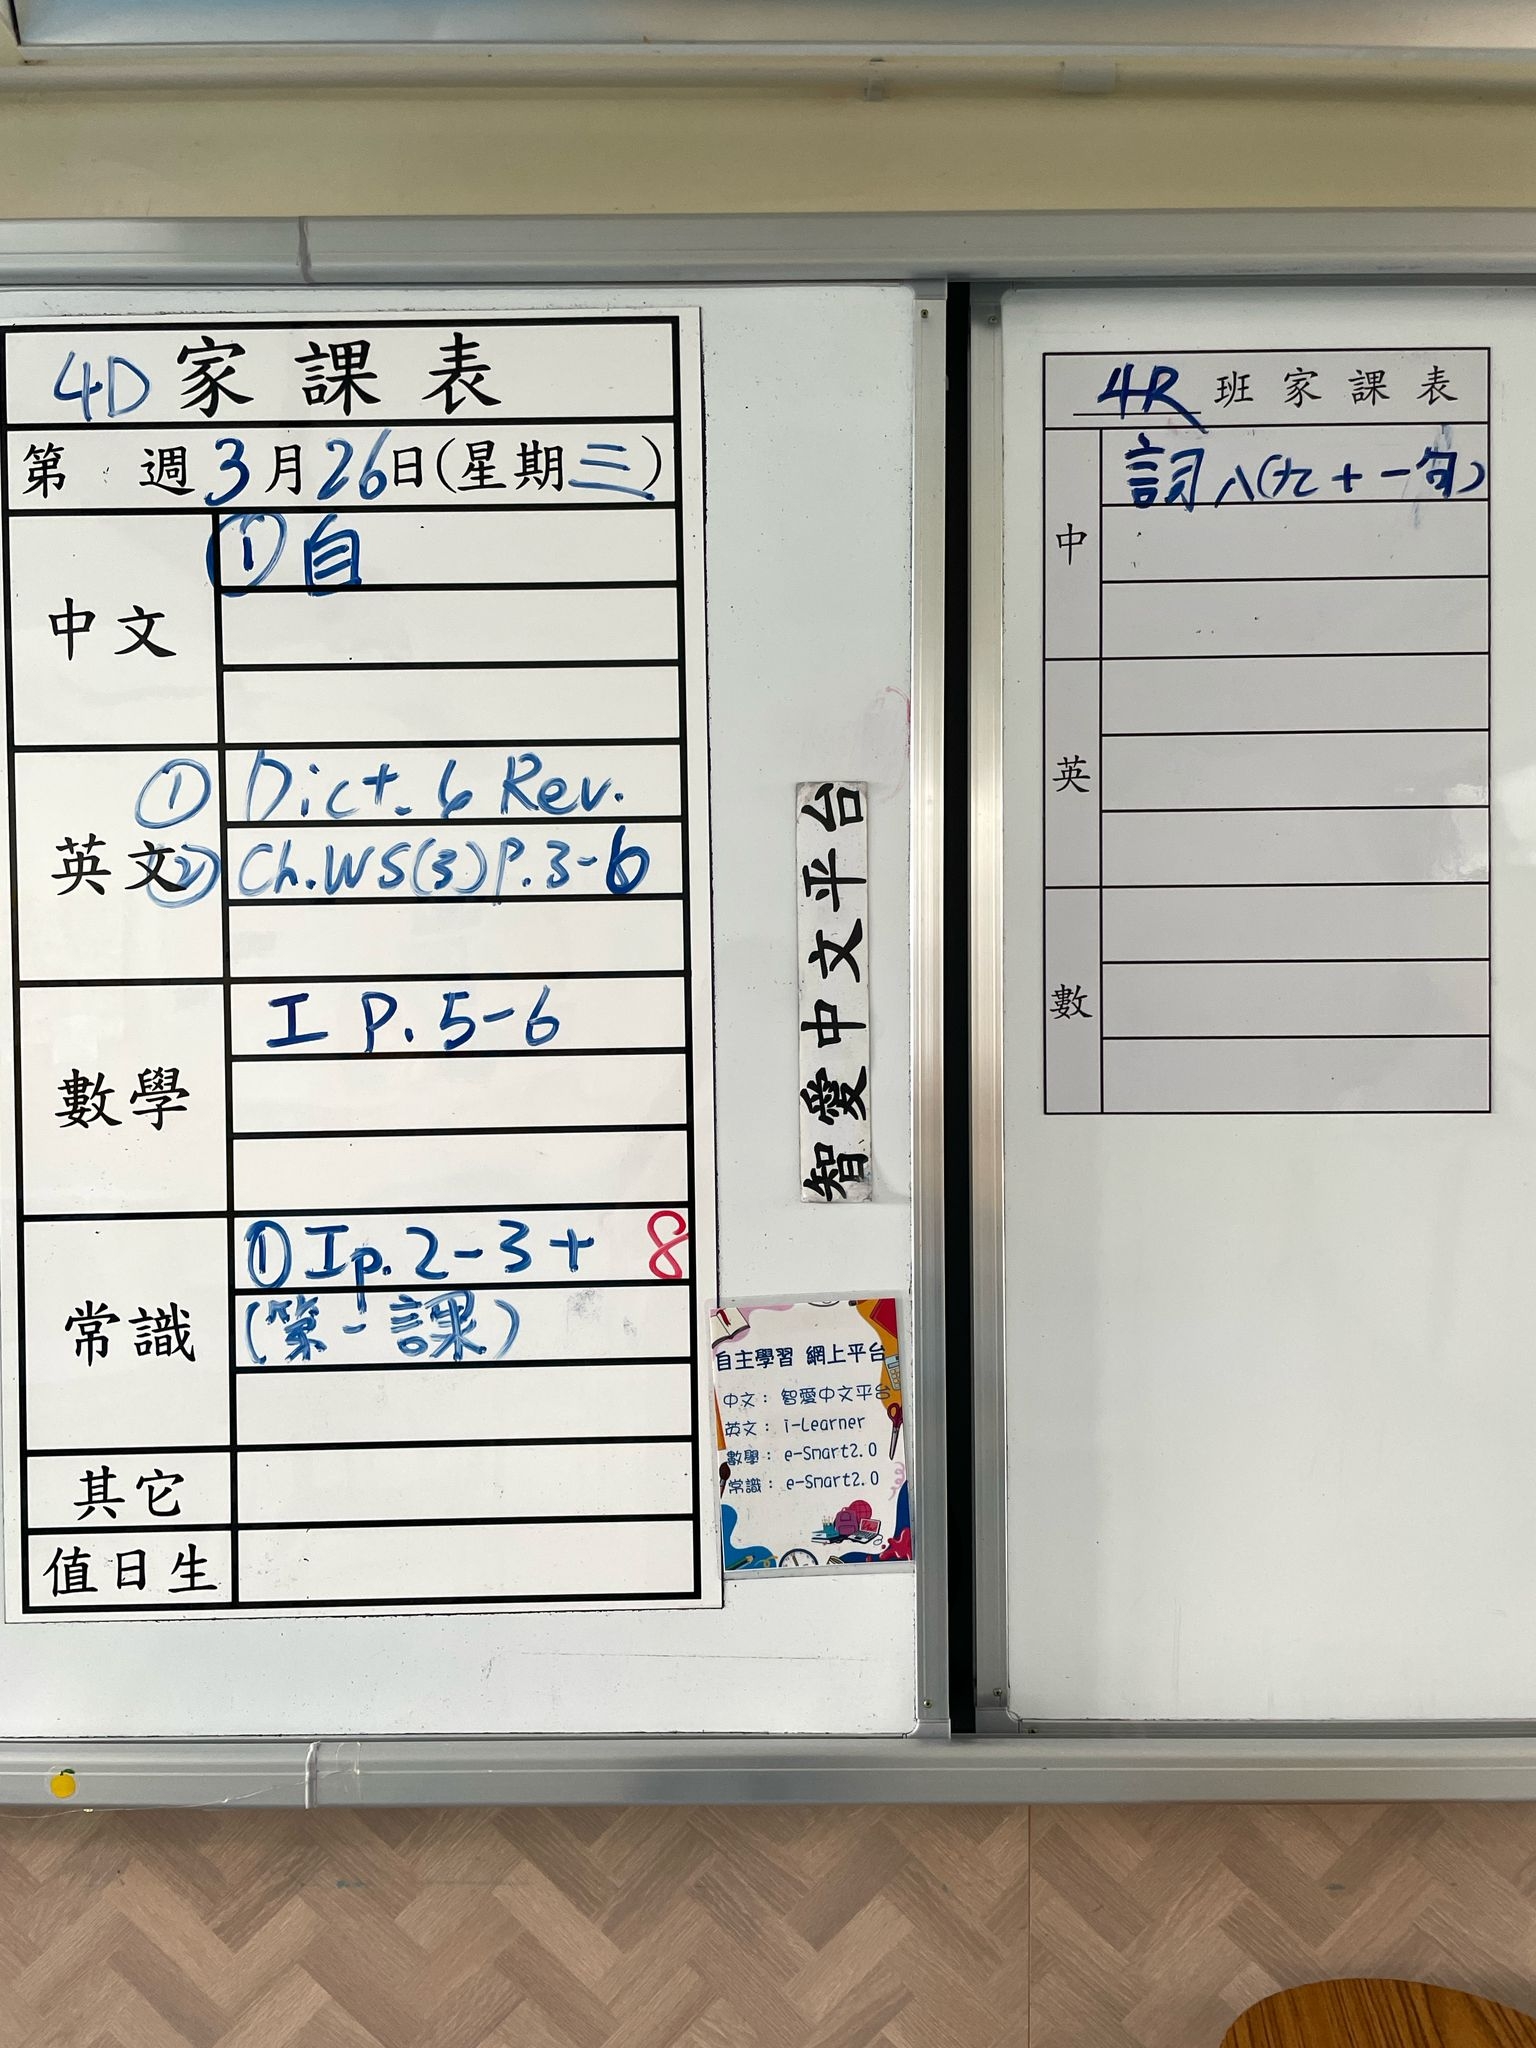 4D 家課表
第 週 3月26日(星期三)
中文
① 自
英文
① Dict. 6 Rev.
② Ch.WS(3)P.3-6
數學
I P.5-6
常識
① Ip.2-3+ 8
(第一課)
其它
值日生
智愛中文平台
自主學習 網上平台
中文： 智愛中文平台
英文： i-Learner
數學： e-Smart2.0
常識： e-Smart2.0
4R 班家課表
中
詞八(九+一句)
英
數